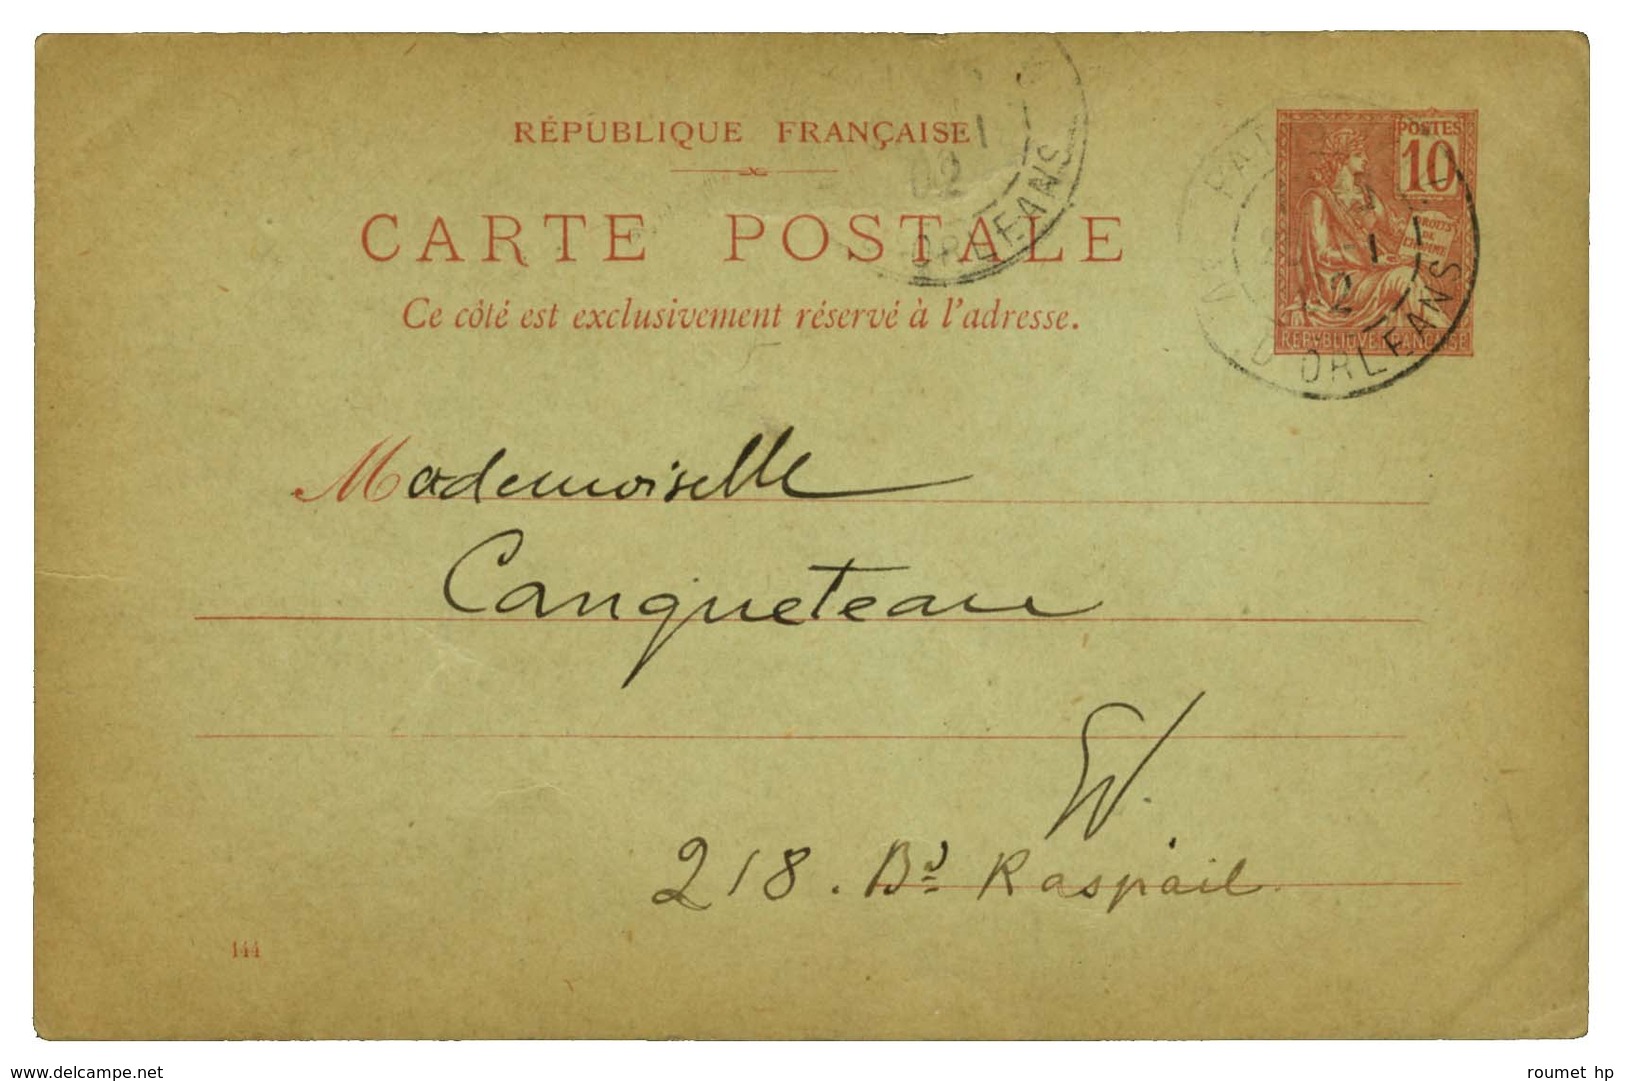 RÉPUBLIQUE FRANÇAISE
CARTE POSTALE
Ce côté est exclusivement réservé à l'adresse.
POSTES
10
DROITS
DE
L'HOMME
REPVBLIQVE FRANÇAISE
02
ORLEANS
D'ORLEANS
Mademoiselle
Canqueteau
EV.
218. Bd Raspail
144
www.delcampe.net
roumet hp